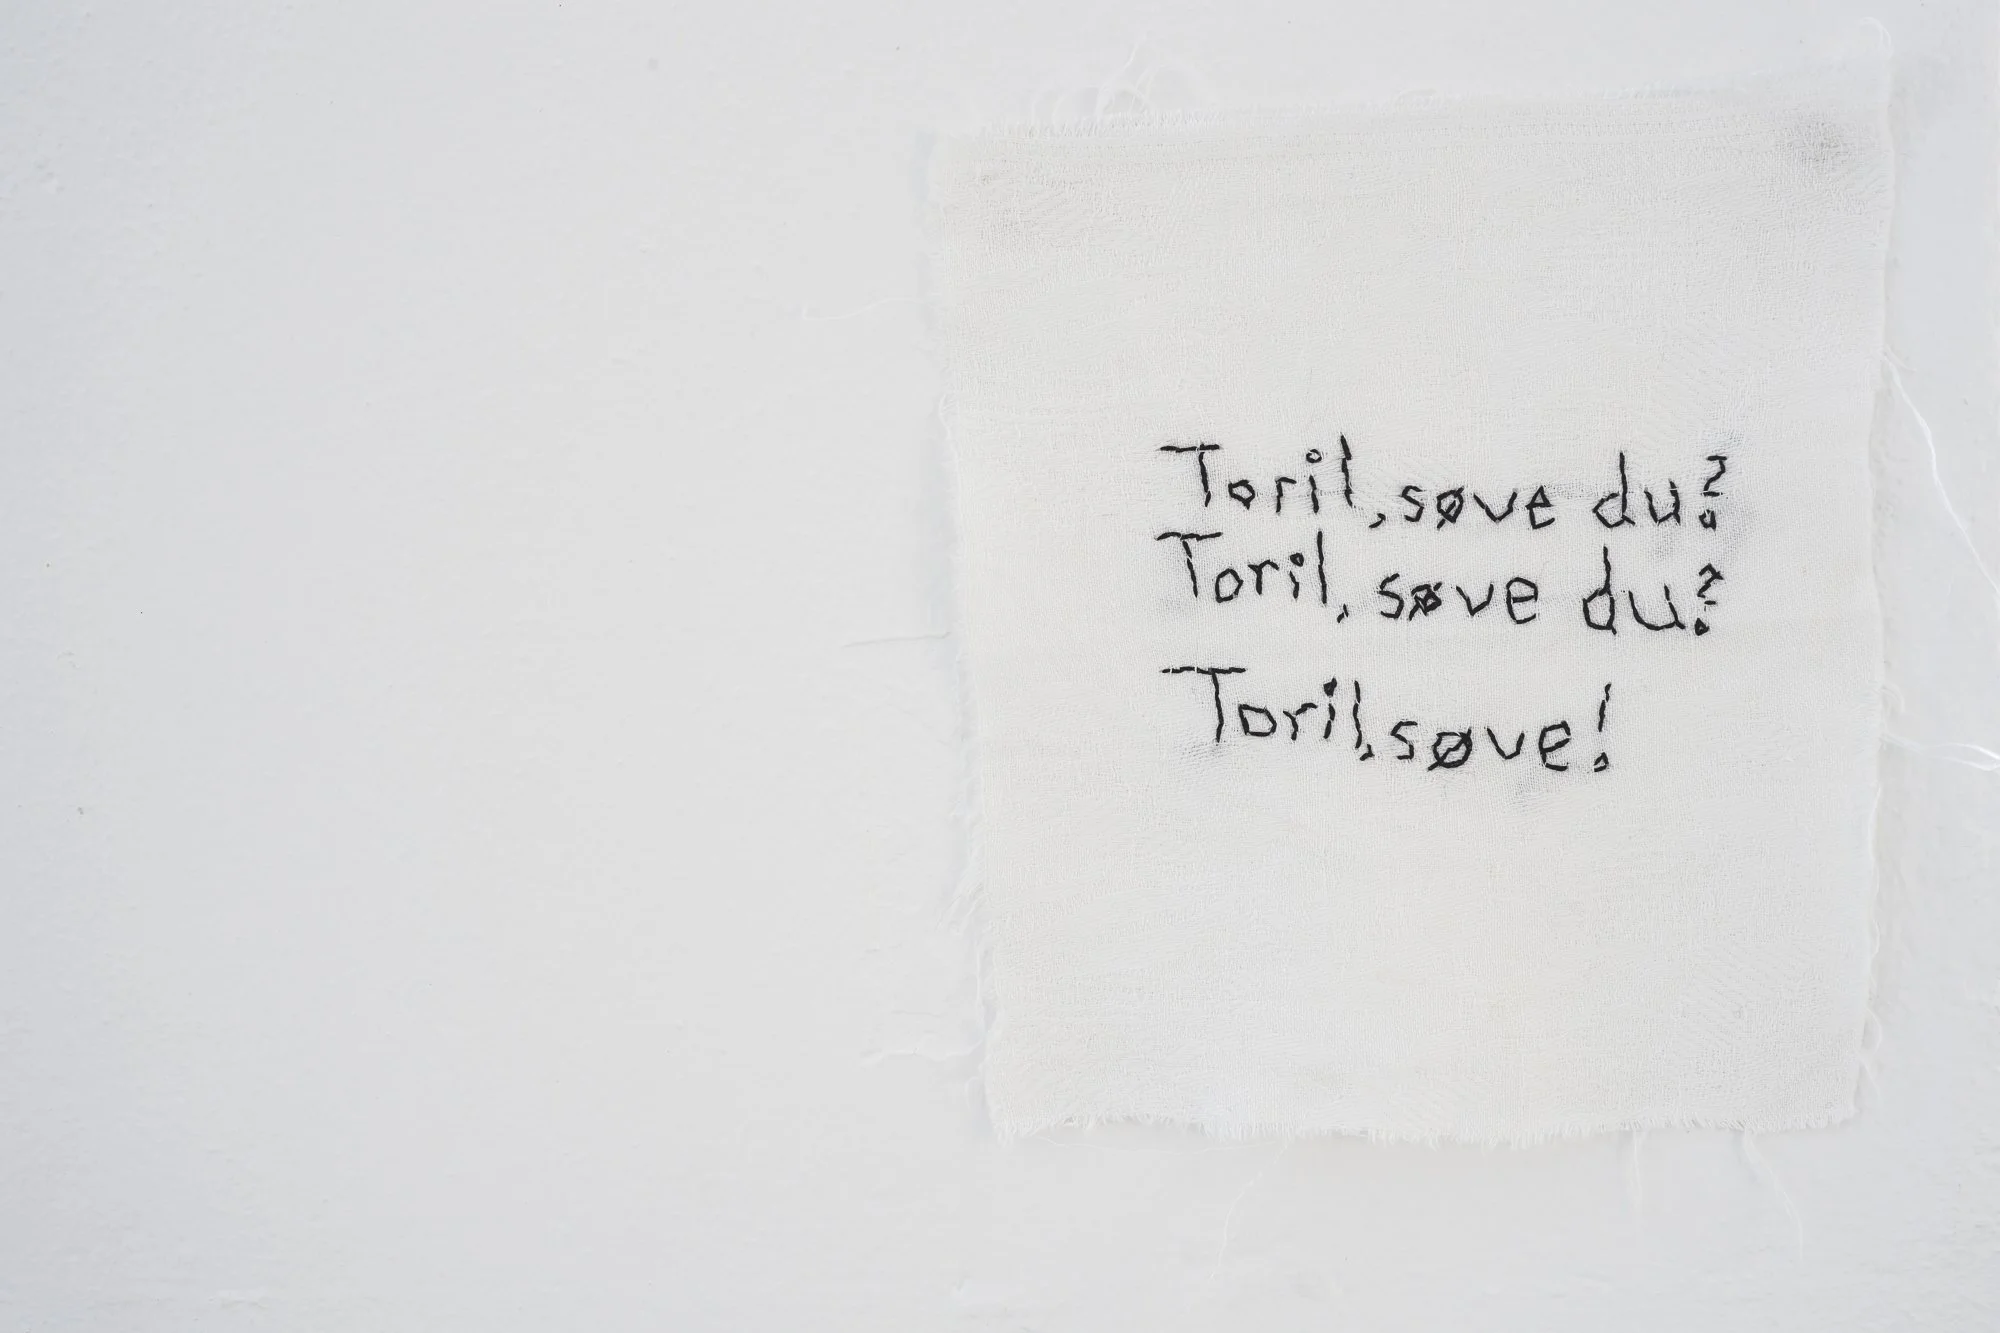 Toril, søve du?
Toril, søve du?
Toril, søve!